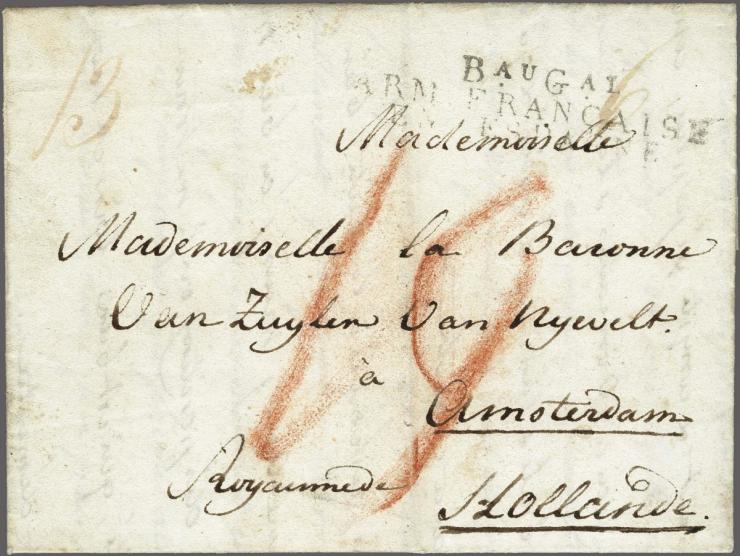 13
BAU GAL
ARM. FRANÇAISE
EN ESPAGNE
Mademoiselle
Mademoiselle la Baronne
Van Zuylen Van Nyevelt.
à
Amsterdam
Royaume de Hollande.
19